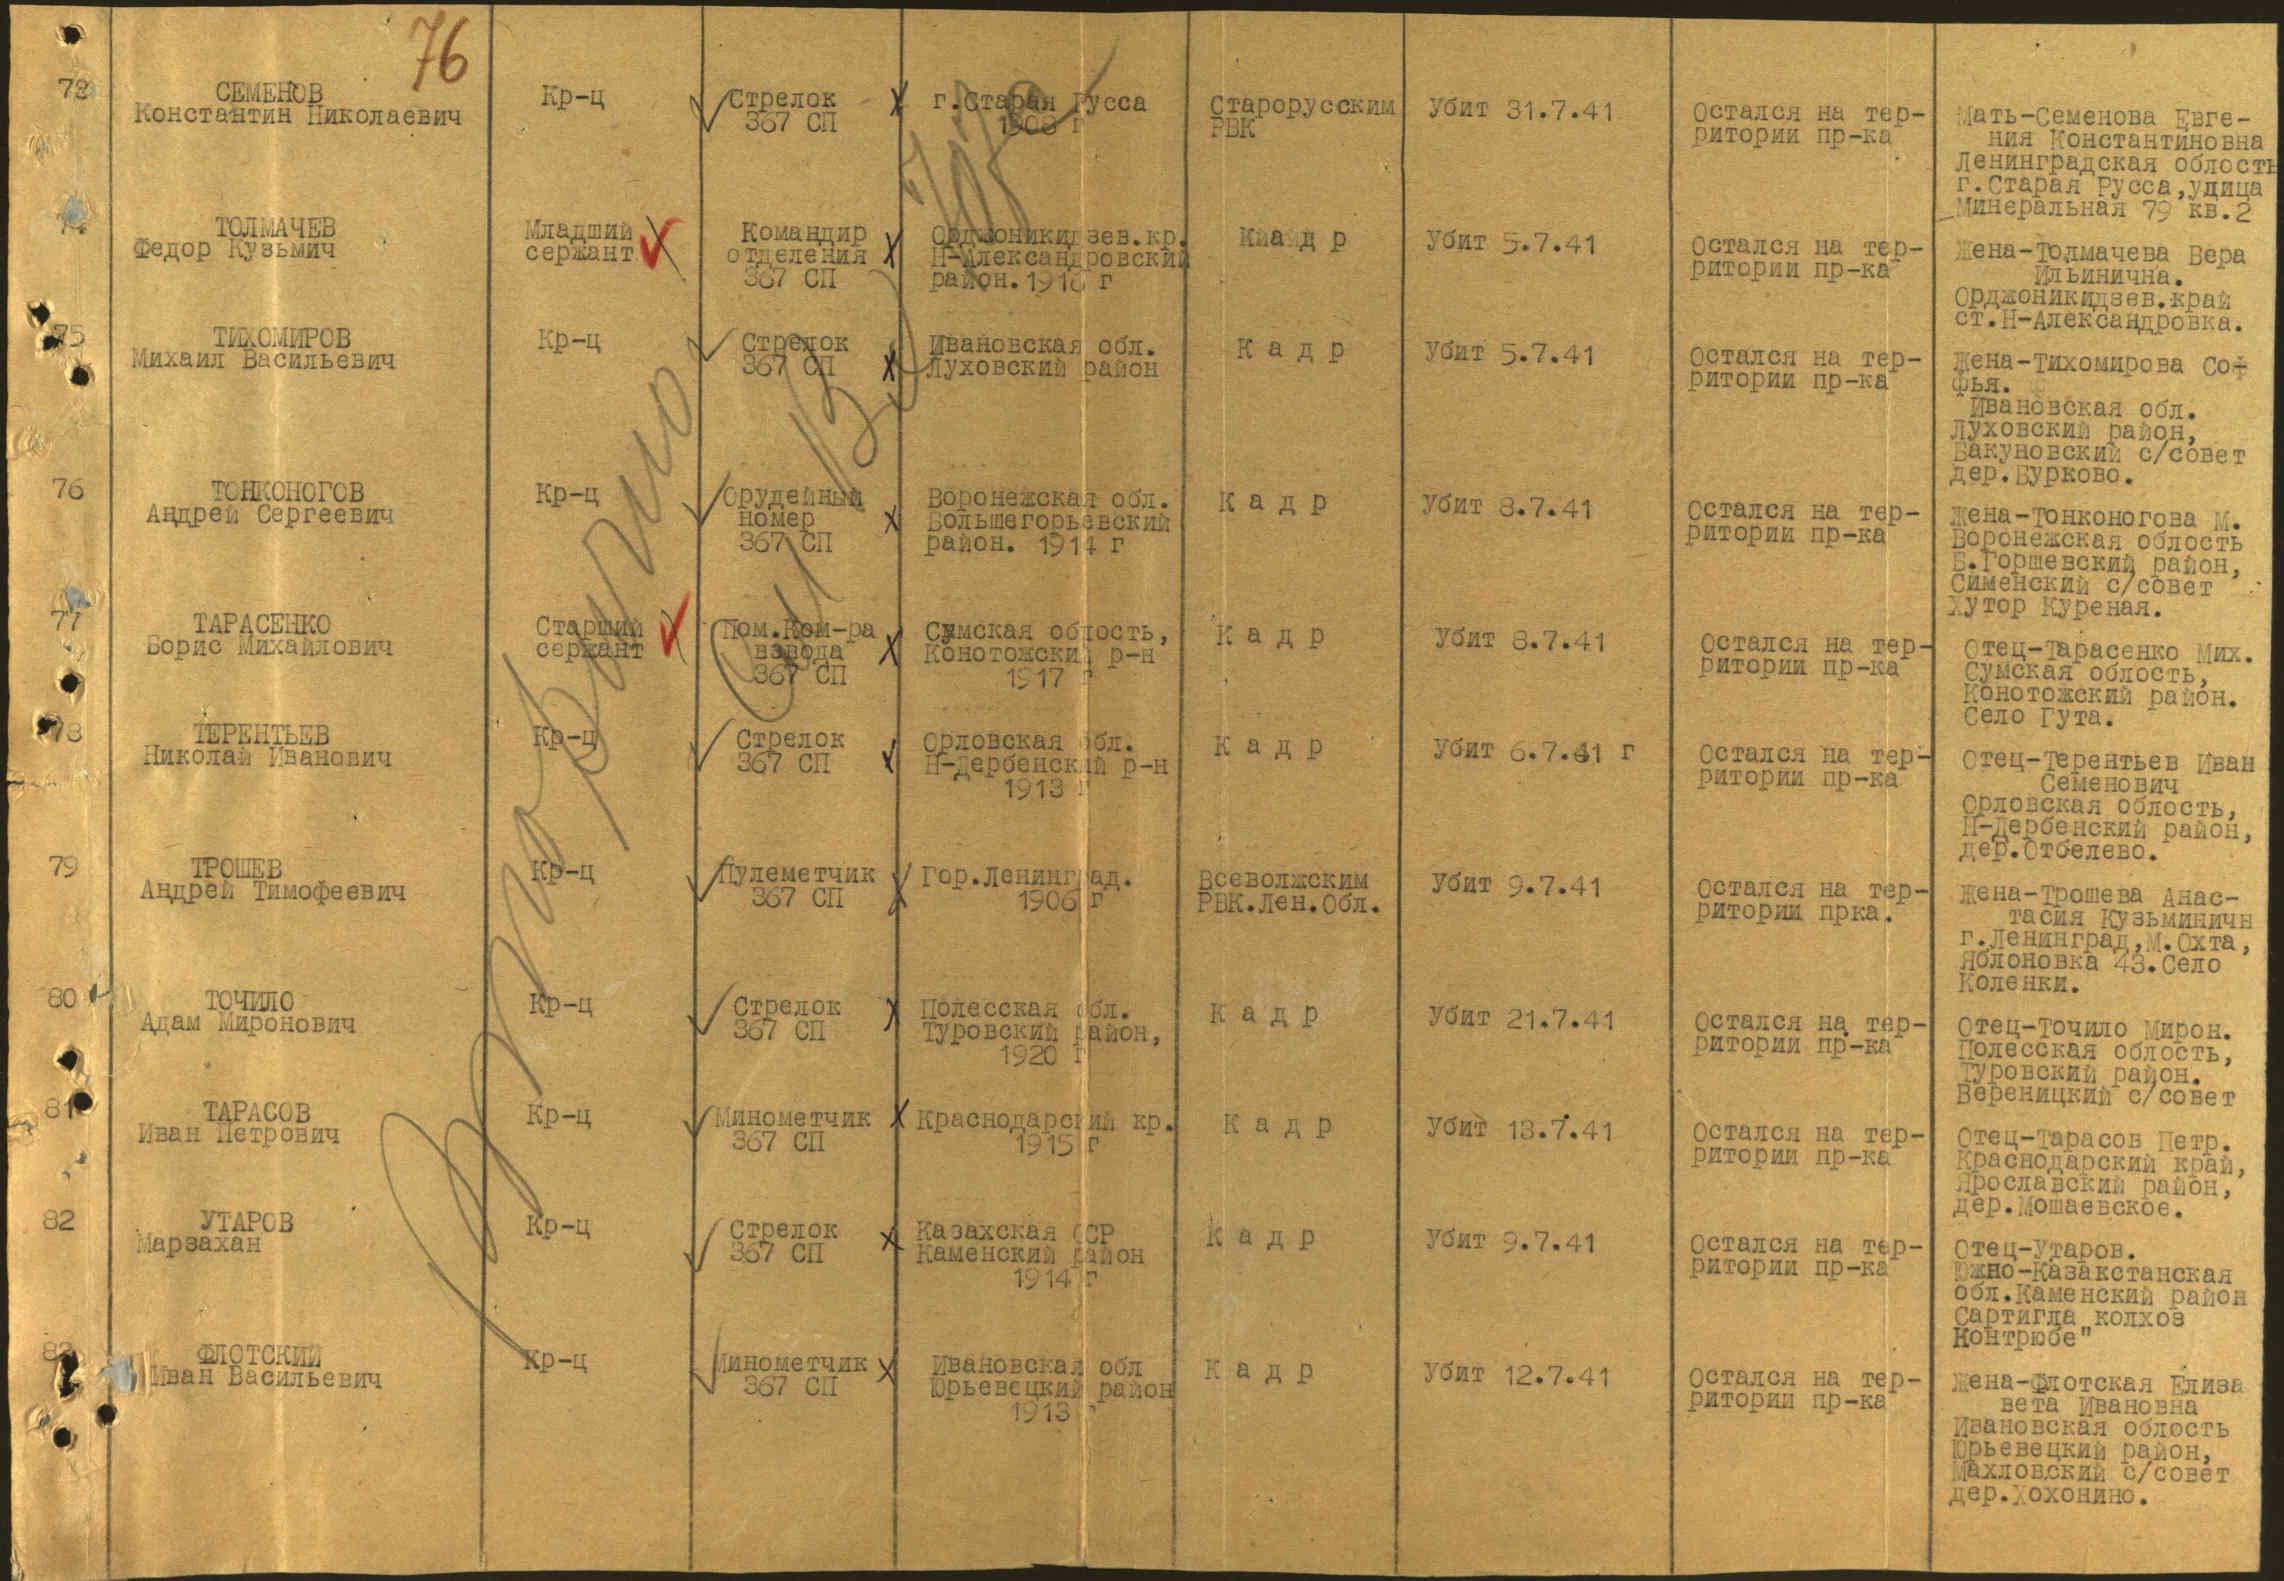 76
72
СЕМЕНОВ
Константин Николаевич
Кр-ц
Стрелок
367 СП
г.Старая Русса
1908 г
Старорусским
РВК
Убит 31.7.41
Остался на тер-
ритории пр-ка
Мать-Семенова Евге-
ния Константиновна
Ленинградская облость
г.Старая Русса,улица
Минеральная 79 кв.2
74
ТОЛМАЧЕВ
Федор Кузьмич
Младший
сержант
Командир
отделения
367 СП
Орджоникидзев.кр.
Н-Александровский
район. 1916 г
К а д р
Убит 5.7.41
Остался на тер-
ритории пр-ка
Жена-Толмачева Вера
Ильинична.
Орджоникидзев.край
ст.Н-Александровка.
75
ТИХОМИРОВ
Михаил Васильевич
Кр-ц
Стрелок
367 СП
Ивановская обл.
Луховский район
К а д р
Убит 5.7.41
Остался на тер-
ритории пр-ка
Жена-Тихомирова Соф
фья.
Ивановская обл.
Луховский район,
Бакуновский с/совет
дер.Бурково.
76
ТОНКОНОГОВ
Андрей Сергеевич
Кр-ц
Орудейный
номер
367 СП
Воронежская обл.
Большегорьевский
район. 1914 г
К а д р
Убит 8.7.41
Остался на тер-
ритории пр-ка
Жена-Тонконогова М.
Воронежская облость
Б.Горшевский район,
Сименский с/совет
Хутор Куреная.
77
ТАРАСЕНКО
Борис Михайлович
Старший
сержант
Пом.Ком-ра
взвода
367 СП
Сумская область,
Конотожский р-н
1917 г
К а д р
Убит 8.7.41
Остался на тер-
ритории пр-ка
Отец-Тарасенко Мих.
Сумская облость,
Конотожский район.
Село Гута.
78
ТЕРЕНТЬЕВ
Николай Иванович
Кр-ц
Стрелок
367 СП
Орловская обл.
Н-Дербенский р-н
1913 г
К а д р
Убит 6.7.41 г
Остался на тер-
ритории пр-ка
Отец-Терентьев Иван
Семенович
Орловская облость,
Н-Дербенский район,
дер.Отбелево.
79
ТРОШЕВ
Андрей Тимофеевич
Кр-ц
Пулеметчик
367 СП
Гор.Ленинград.
1906 г
Всеволжским
РВК.Лен.Обл.
Убит 9.7.41
Остался на тер-
ритории прка.
Жена-Трошева Анас-
тасия Кузьминичн
г.Ленинград,М.Охта,
Яблоновка 43.Село
Коленки.
80
ТОЧИЛО
Адам Миронович
Кр-ц
Стрелок
367 СП
Полесская обл.
Туровский район,
1920 г
К а д р
Убит 21.7.41
Остался на тер-
ритории пр-ка
Отец-Точило Мирон.
Полесская облость,
Туровский район.
Вереницкий с/совет
81
ТАРАСОВ
Иван Петрович
Кр-ц
Минометчик
367 СП
Краснодарский кр.
1915 г
К а д р
Убит 13.7.41
Остался на тер-
ритории пр-ка
Отец-Тарасов Петр.
Краснодарский край,
Ярославский район,
дер.Мошаевское.
82
УТАРОВ
Марзахан
Кр-ц
Стрелок
367 СП
Казахская ССР
Каменский район
1914 г
К а д р
Убит 9.7.41
Остался на тер-
ритории пр-ка
Отец-Утаров.
Южно-Казакстанская
обл.Каменский район
Сартигла колхоз
Контрюбе"
83
ФЛОТСКИЙ
Иван Васильевич
Кр-ц
Минометчик
367 СП
Ивановская обл
Юрьевецкий район
1913 г
К а д р
Убит 12.7.41
Остался на тер-
ритории пр-ка
Жена-Флотская Елиза
вета Ивановна
Ивановская облость
Юрьевецкий район,
Махловский с/совет
дер.Хохонино.